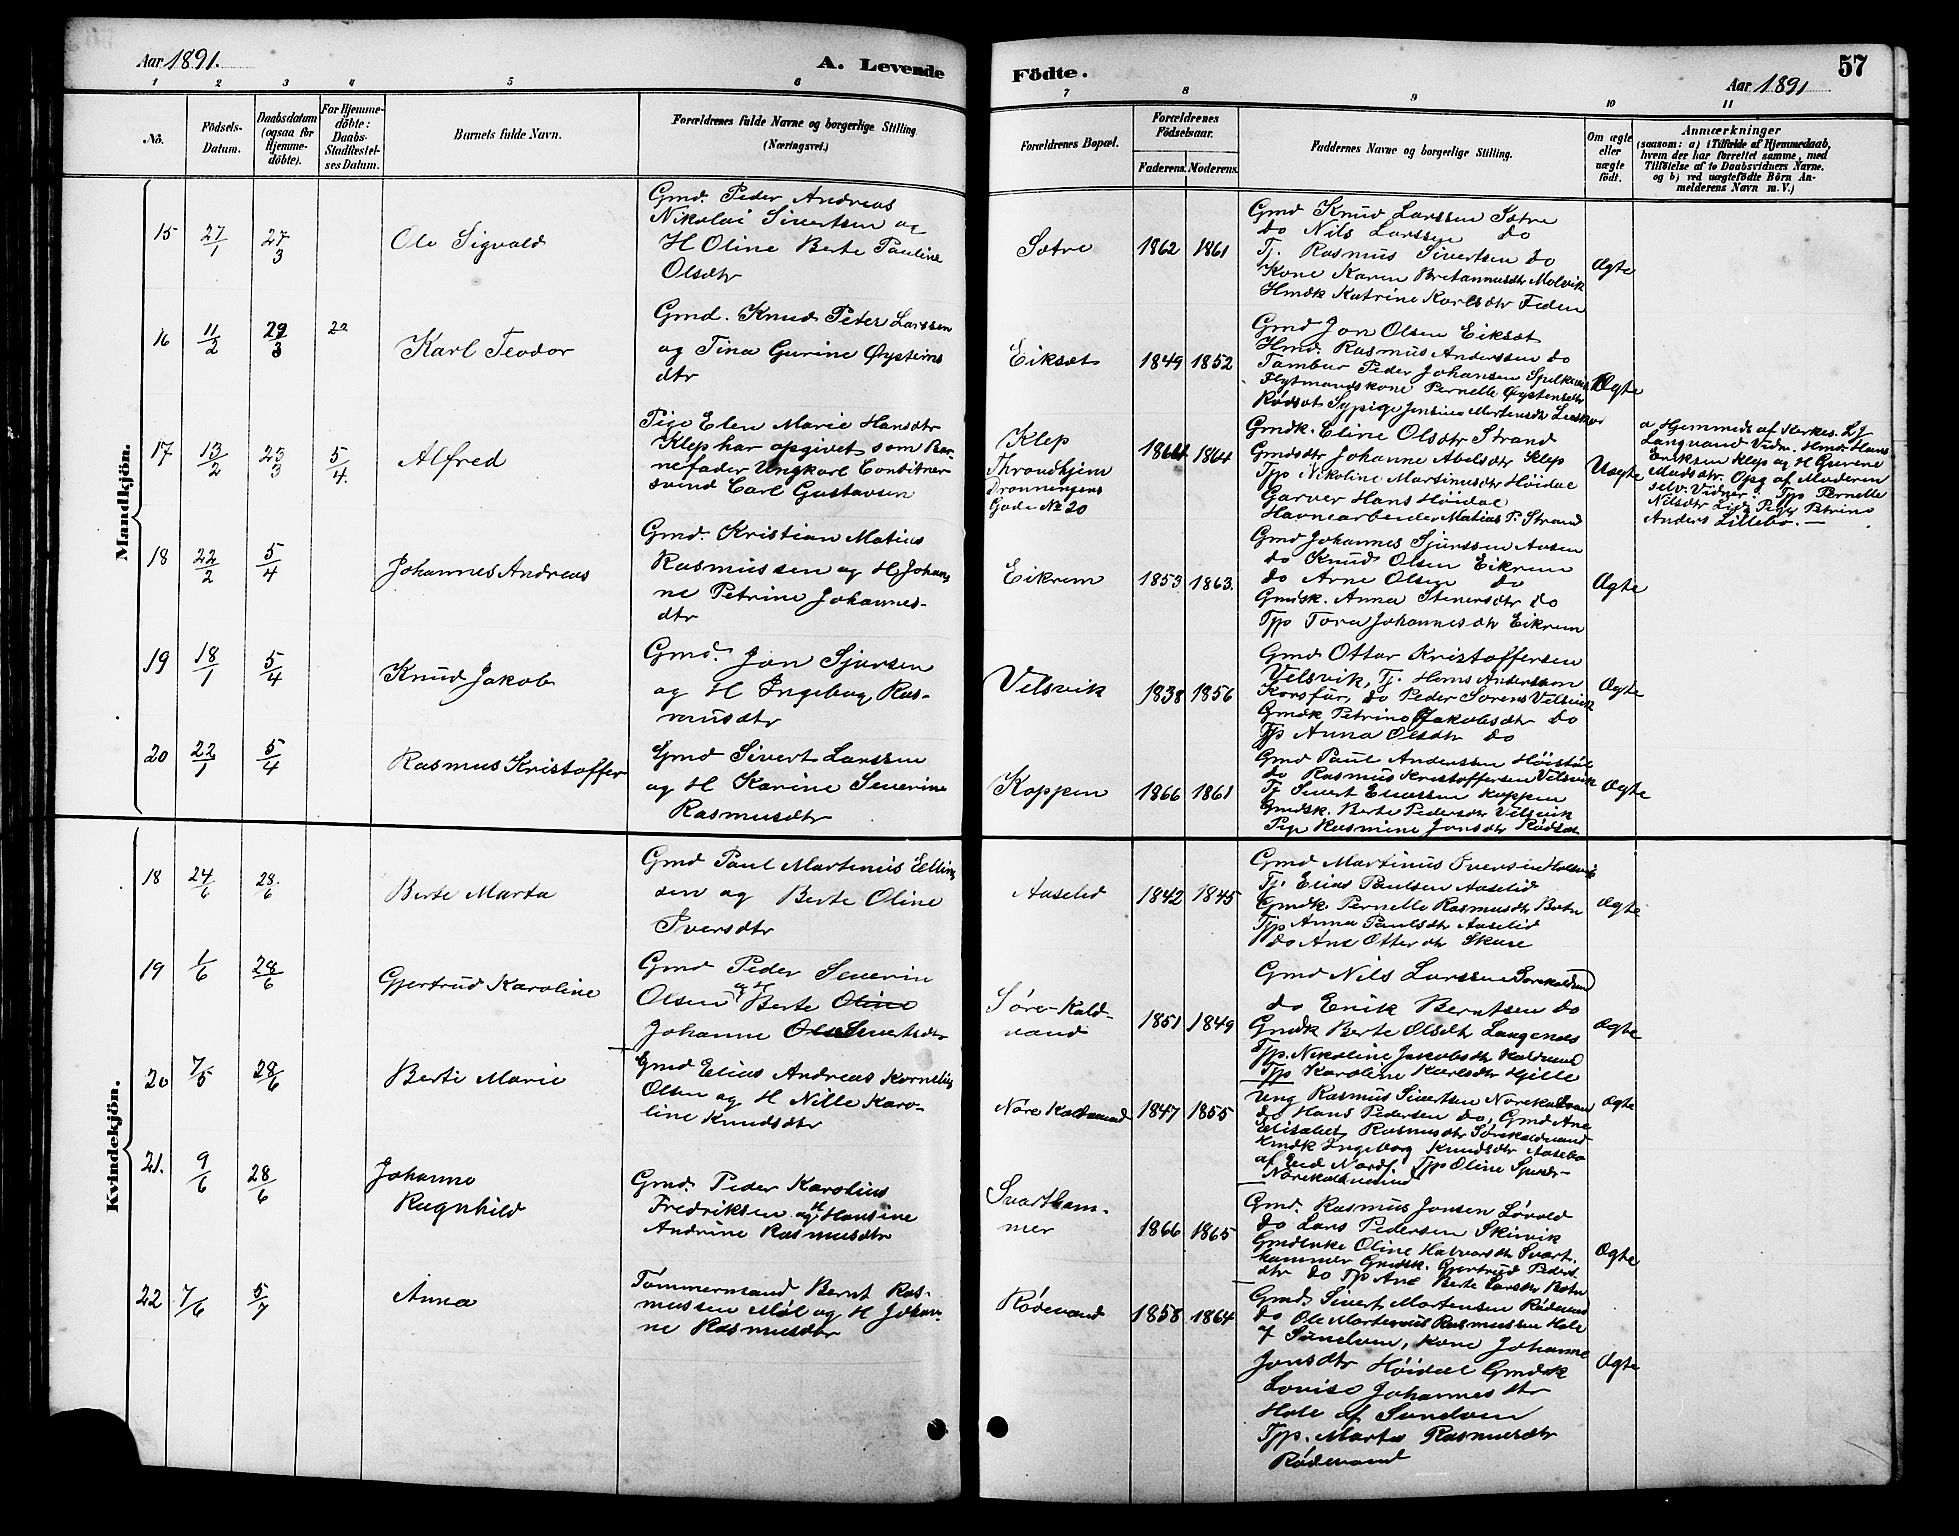 Aar 1891.
A. Levende
Födte.
57
Aar 1891
1 2 3 4 5 6 7 8 9 10 11
No.
Födsels-
Datum.
Daabsdatum
(ogsaa for
Hjemme-
döbte).
For Hjemme-
döbte:
Daabs-
Stadfestel-
ses Datum.
Barnets fulde Navn.
Forældrenes fulde Navne og borgerlige Stilling.
(Næringsvei.)
Forældrenes Bopæl.
Forældrenes
Födselsaar.
Faderens. Moderens.
Faddernes Navne og borgerlige Stilling.
Om ægte
eller
uægte
födt.
Anmærkninger
(saasom: a) i Tilfælde af Hjemmedaab,
hvem der har forrettet samme, med
Tilföielse af to Daabsvidners Navne.
og b) ved uægtefödte Börn An-
melderens Navn m. V.)
Mandkjön.
15 27/1 27/3
Ole Sigvald
Gmd. Peder Andreas
Nikolai Sivertsen og
H Oline Berte Pauline
Olsdtr
Sætre
1862 1861
Gmd Knud Larssen Sætre
do Nils Larssen do
Tj. Rasmus Sivertsen do
Kone Karen Bretannusdtr Molvik
Hmdk Katrine Karlsdtr Feden
Ægte
16 11/2 29/3 22
Karl Teodor
Gmd. Knud Peter Larssen
og Tina Gurine Øysteins
dtr
Eikset
1849 1852
Gmd Jon Olsen Eikset
Hmd. Rasmus Anderssen do
Tambur Peder Johansen Spelkevik
Flytmandskone Pernelle Øystensdtr
Rødset Sypige Jensine Martensdtr
Ægte
17 13/2 23/3 5/4.
Alfred
Pige Elen Marie Hansdtr
Klep har opgivet som Bar-
nefader Ungkarl Conditner
svend Carl Gustavsen
Klep
Throndhjem
Dronningens
Gade No 20
1864 1864
Gmdk. Eline Olsdtr Strand
Gmdsdtr Johanne Abelsdtr Klep
Tjp Nikoline Martinusdtr Høidal
Garver Hans Høidal
Havnearbeider Matias P. Strand
Uægte
a Hjemmedb af Kirkes. Lj
Langvand Vidn. Hmd. Hans
Eriksen Klep og H Gurene
Madsdtr. Opg af Moderen
selv. Vidner: Tjp Pernelle
Nilsdtr Pige Petrine
Anders Lillebø. —
18 22/2 5/4
Johannes Andreas
Gmd. Kristian Matias
Rasmussen og H Johan
ne Petrine Johannes-
dtr
Eikrem
1853 1863.
Gmd Johannes Sjurssen Aasen
do Knud Olsen Eikrem
do Arne Olsen do
Gmdsk. Anna Steinersdtr do
Tjp Tora Johannesdtr Eikrem
Ægte
19 18/1 5/4
Knud Jakob
Gmd. Jon Sjursen
og H Ingeborg Ras-
musdtr
Velsvik
1838 1856
Gmd Ottar Kristoffersen
Velsvik, Tj. Hans Anderssen
Korsfur, do Peder Sørens Velsvik
Gmdk Petrine Jakobsdtr do
Tjp Anna Olsdtr do
Ægte
20 22/1 5/4
Rasmus Kristoffer
Gmd Sivert Larssen
og H Karine Severine
Rasmusdtr
Koppen
1866 1861
Gmd Paul Anderssen Høistøl
do Rasmus Kristoffersen Velsvik
Tj Sivert Eliassen Koppen
Gmdsk. Berte Pedersdtr Velsvik
Pige Rasmine Jonsdtr Rødset
Ægte
Kvindekjön.
18 24/6 28/6
Berte Marta
Gmd Paul Martinus Elling
sen og Berte Oline
Iversdtr
Aaselid
1842 1845
Gmd Martinus Iversen Holsvik
Tj. Elias Paulsen Aaselid
Gmdk. Pernelle Rasmusdtr Botn
Tjp Anna Paulsdtr Aaselid
do Ane Otterdtr Skare
Ægte
19 1/6 28/6
Gjertrud Karoline
Gmd Peder Severin
Olsen og H Berte Oline
Johanne Sivertsdtr
Søre-Kald-
vand
1851 1849
Gmd Nils Larssen Sørekaldvand
do Erik Berntsen do
Gmdk Berte Olsdtr Langenes
Tjp. Nikoline Jakobsdtr Kaldvand
Tjp Karoline Karlsdtr Hjelle
Ægte
20 7/5 28/6
Berte Marie
Gmd Elias Andreas Kornelius
Olsen og H Nille Karo-
line Knudsdtr
Nøre Kaldvand
1847 1855
Ung Rasmus Sivertsen Nørekaldvan
do Hans Pedersen do, Gmd Ane
Elisabet Rasmusdtr Sørekaldvand
Hmdk Ingeborg Knudsdtr Aasebø
af Eid Nordf. Tjp Oline
Nørekaldvand
Ægte
21. 9/6 28/6
Johanne
Ragnhild
Gmd. Peder Karolius
Fredriksen og H Hansine
Andrine Rasmusdtr
Svartham-
mer
1866 1865
Gmd. Rasmus Jonsen Løvold
do Lars Pedersen Skinvik
Gmdenke Oline Halvorsdtr Svart-
hammer Gmdsk. Gjertrud Peders
dtr do Tjp Ane Berte Larsdtr Botn
Ægte
22 7/6 5/7
Anna
Tømmermand Bernt Ras-
mussen Møl og H Johan-
ne Rasmusdtr
Rødevand
1858 1864
Gmd. Sivert Mortensen Rødevand
do Ole Martinus Rasmussen Hole
af Sunelven, Kone Johanne
Jonsdtr Høidal Gmdsk
Lovise Johannesdtr
Hole af Sunelven
Tjp. Marta Rasmusdtr
Rødevand
Ægte